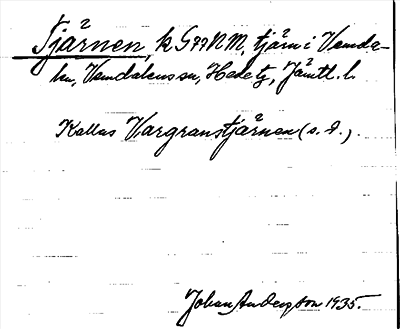 Tjärnen, k G77NM, tjärn i Vemda-
len, Vemdalens sn, Hede tg, Jämtl. l.
Kallas Vargranstjärnen (s. d.).
Johan Anderzson 1935.